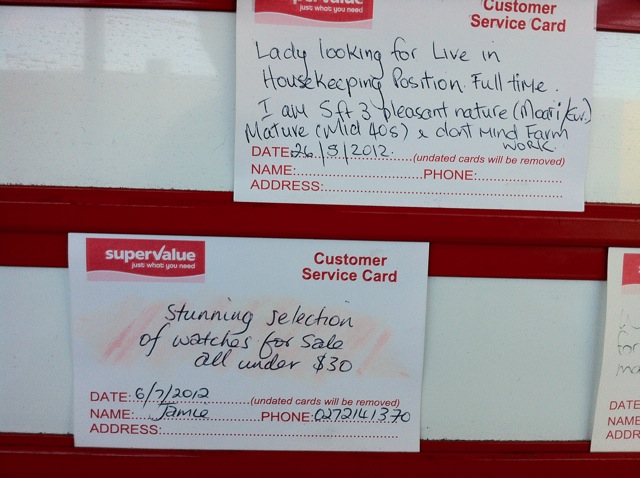 just what you need
Customer
Service Card
Lady looking for Live in
Housekeeping Position. Full time.
I am 5ft 3 pleasant nature (Maori/Eur.)
Mature (Mid 40s) & dont Mind Farm
WORK
DATE: 26/5/2012 (undated cards will be removed)
NAME: PHONE:
ADDRESS:
supervalue
just what you need
Customer
Service Card
Stunning selection
of watches for sale
all under $30
DATE: 6/7/2012 (undated cards will be removed)
NAME: Jamie PHONE: 0272141370
ADDRESS:
for
DATE
NAME
ADDR